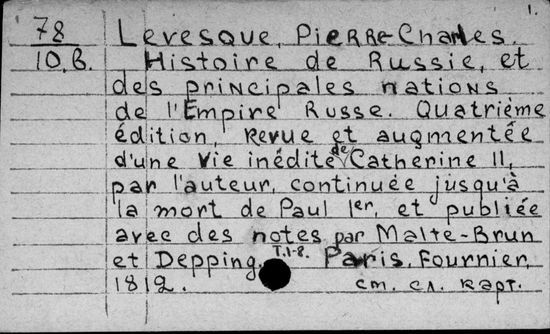 1.
78 Levesque, Pierre-Charles.
10.B. Histoire de Russie, et
des principales nations
de l'Empire Russe. Quatrième
édition, revue et augmentée
d'une vie inédite de Catherine II,
par l'auteur, continuée jusqu'à
la mort de Paul Ier, et publiée
avec des notes par Malte-Brun
et Depping. T.1-8. Paris, Fournier,
1812. см. сл. карт.